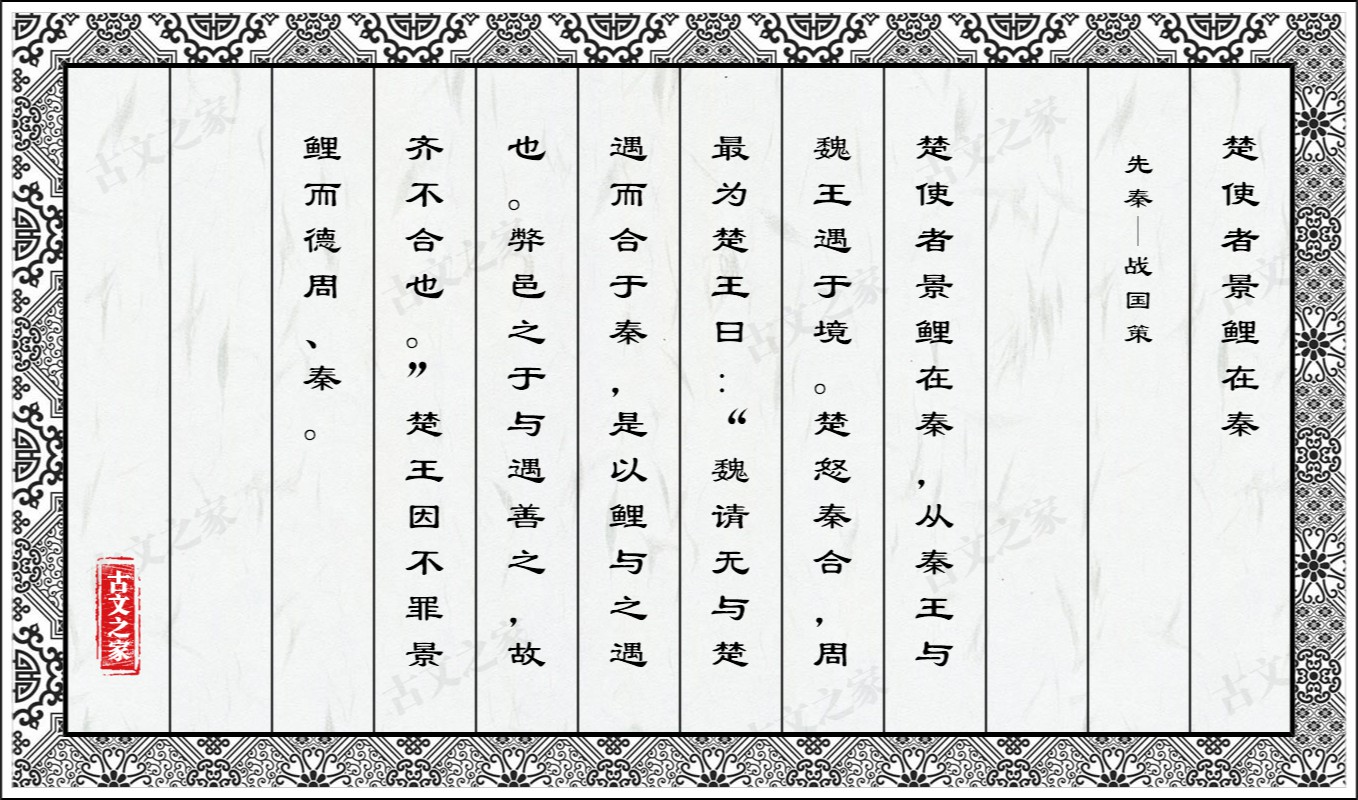 楚使者景鲤在秦
先秦—战国策
楚使者景鲤在秦,从秦王与
魏王遇于境。楚怒秦合,周
最为楚王曰:“魏请无与楚
遇而合于秦,是以鲤与之遇
也。弊邑之于与遇善之,故
齐不合也。”楚王因不罪景
鲤而德周、秦。
古文之家